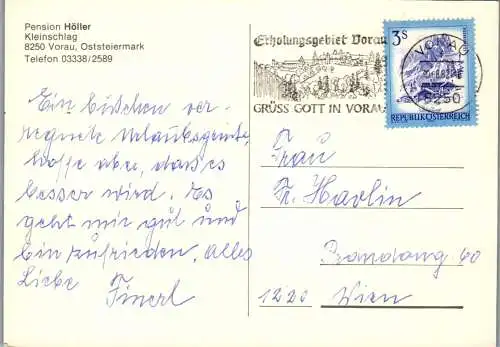 Pension Höller
Kleinschlag
8250 Vorau, Oststeiermark
Telefon 03338/2589
Erholungsgebiet Vorau
GRÜSS GOTT IN VORAU
3S
REPUBLIK ÖSTERREICH
VORAU
8250
Ein bißchen ver-
regnete Urlaubsgrüße,
hoffe aber, daß es
besser wird. Es
geht mir gut und
bin zufrieden, alles
Liebe
Frau
Fr. Havlin
60
1220 Wien